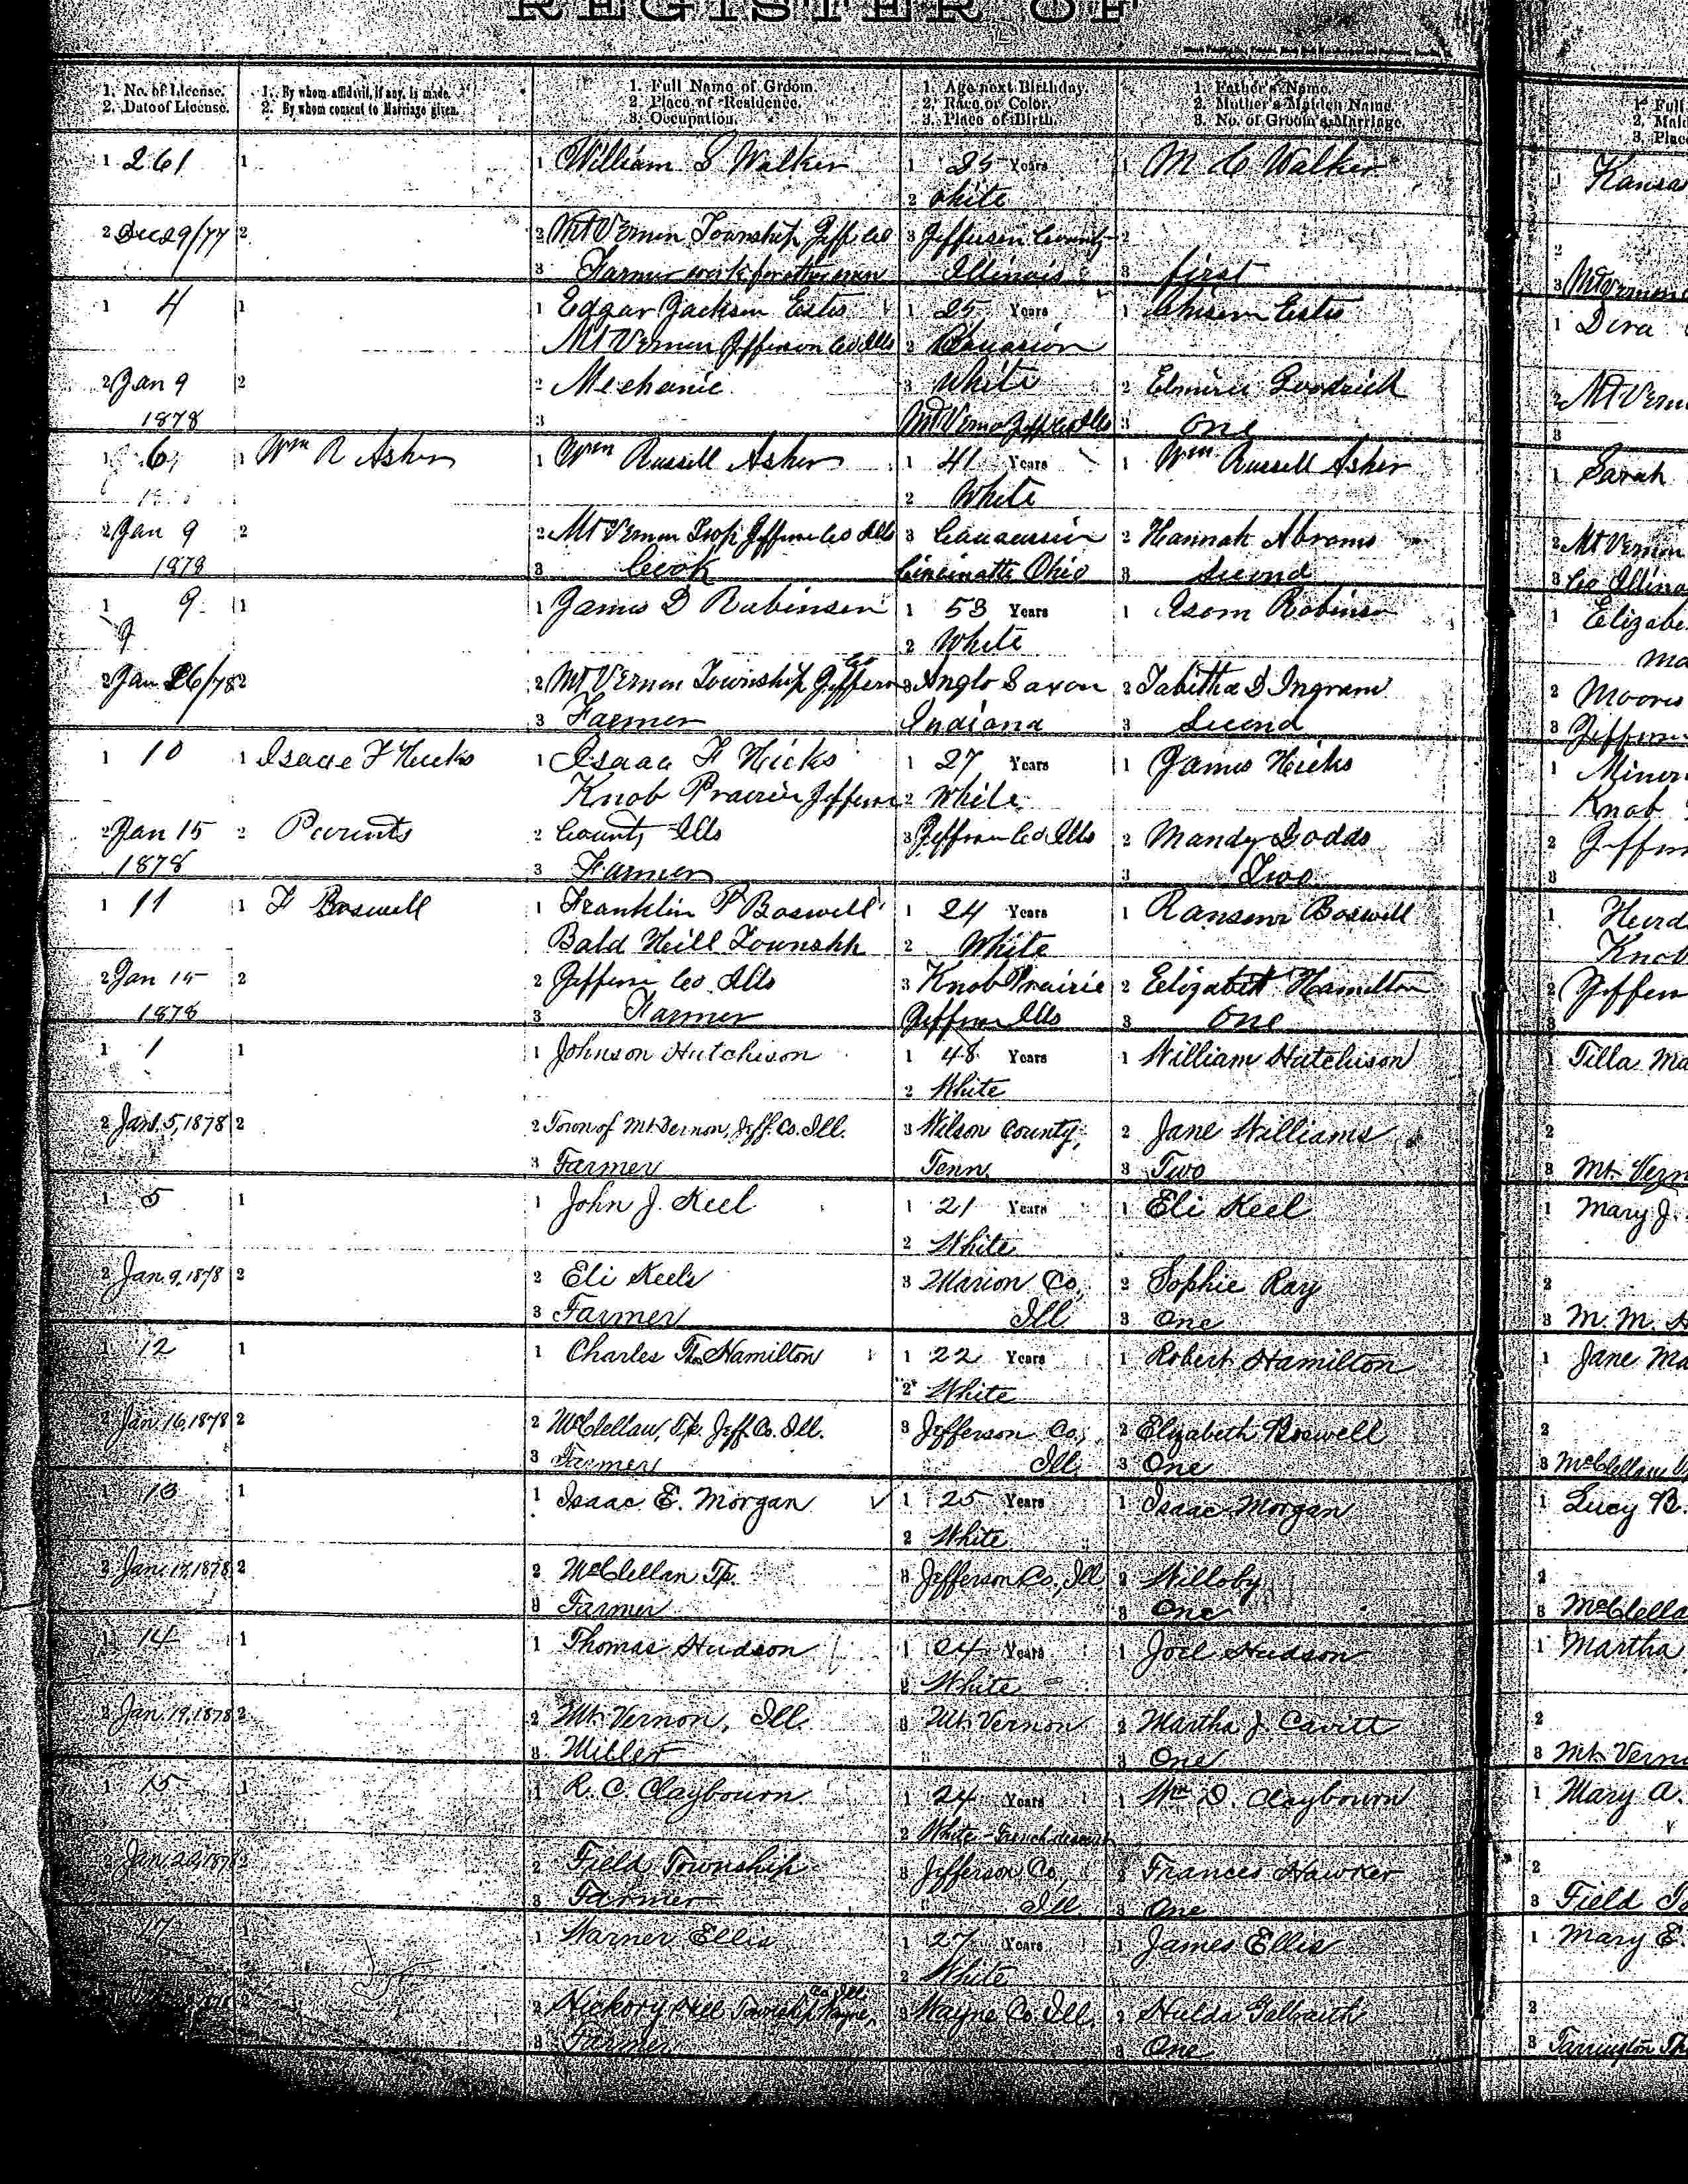 REGISTER OF
1. No. of License.
2. Date of License.
1. By whom affidavit, if any, is made.
2. By whom consent to Marriage given.
1. Full Name of Groom.
2. Place of Residence.
3. Occupation.
1. Age next Birthday.
2. Race or Color.
3. Place of Birth.
1. Father's Name.
2. Mother's Maiden Name.
3. No. of Groom's Marriage.
1. Full
2. Maid
3. Place
1 261 1 1 William S Walker 1 25 Years 1 M C Walker 1 Kansas
2 White
2 Dec 29/77 2 2 Mt Vernon Township Jeff Co 3 Jefferson County 2 2
3 Farmer work for other men Illinois 3 first 3 Mt Vernon
1 4 1 1 Edgar Jackson Estes 1 25 Years 1 Chism Estes 1 Dora
Mt Vernon Jefferson Co Ills 2 Caucasion
2 Jan 9 2 2 Mechanic 3 White 2 Elmira Goodrich 2 Mt Vern
1878 3 Mt Verno Jeff Co Ills 3 One 3
1 6 1 Wm R Asher 1 Wm Russell Asher 1 41 Years 1 Wm Russell Asher 1 Sarah
2 White
2 Jan 9 2 2 Mt Vernon Twp Jefferson Co Ills 3 Caucassien 2 Hannah Abrams 2 Mt Vernon
1878 3 Cook Cincinatti Ohio 3 Second 3 Co Illino
1 9 1 1 James D Robinson 1 53 Years 1 Isom Robinson 1 Elizabe
9 2 White Ma
2 Jan 26/78 2 2 Mt Vernon Township Jefferson Co 3 Anglo Saxon 2 Tabitha D Ingram 2 Moores
3 Farmer Indiana 3 Second 3 Jefferson
1 10 1 Isaac F Hicks 1 Isaac F Hicks 1 27 Years 1 James Hicks 1 Miner
Knob Prairie Jefferson 2 White Knob
2 Jan 15 2 Parents 2 County Ills 3 Jefferson Co Ills 2 Mandy Dodds 2 Jefferson
1878 3 Farmer 3 Two 3
1 11 1 F Boswell 1 Franklin P Boswell 1 24 Years 1 Ransom Boswell 1
Bald Hill Township 2 White Knob
2 Jan 15 2 2 Jefferson Co Ills 3 Knob Prairie 2 Elizabeth Hamilton 2 Jefferson
1878 3 Farmer Jefferson Ills 3 One 3
1 1 1 1 Johnson Hutchison 1 48 Years 1 William Hutchison 1 Tilla Ma
2 White
2 Jan. 5, 1878 2 2 Town of Mt. Vernon, Jeff. Co. Ill. 3 Wilson County, 2 Jane Williams 2
3 Farmer Tenn. 3 Two 3 Mt. Vern
1 5 1 1 John J. Keel 1 21 Years 1 Eli Keel 1 Mary J.
2 White
2 Jan. 9, 1878 2 2 Eli Keel's 3 Marion Co., 2 Sophie Ray 2
3 Farmer Ill 3 One 3 M. M. H
1 12 1 1 Charles Thos Hamilton 1 22 Years 1 Robert Hamilton 1 Jane Ma
2 White
2 Jan. 16, 1878 2 2 McClellan, Tp. Jeff. Co. Ill. 3 Jefferson Co., 2 Elizabeth Boswell 2
3 Farmer Ill 3 One 3 McClellan
1 13 1 1 Isaac E. Morgan 1 25 Years 1 Isaac Morgan 1 Lucy B.
2 White
2 Jan. 17, 1878 2 2 McClellan Tp. 3 Jefferson Co., Ill 2 Willoby 2
3 Farmer 3 One 3 McClella
1 14 1 1 Thomas Hudson 1 24 Years 1 Joel Hudson 1 Martha
2 White
2 Jan. 19, 1878 2 2 Mt. Vernon, Ill. 3 Mt. Vernon 2 Martha J. Cavitt 2
3 Miller " 3 One 3 Mt. Verno
1 15 1 1 R. C. Claybourn 1 24 Years 1 Wm D. Claybourn 1 Mary A.
2 White - French
2 Jan. 1878 2 2 Field Township 3 Jefferson Co., 2 Frances Hawker 2
3 Farmer Ill 3 One 3 Field To
17 1 1 Warner Ellis 1 27 Years 1 James Ellis 1 Mary E.
2 White
2 2 Hickory Hill Township, Wayne, Co. Ill. 3 Wayne Co. Ill. 2 Hulda Galbraith 2
3 Farmer 3 One 3 Farrington Tp